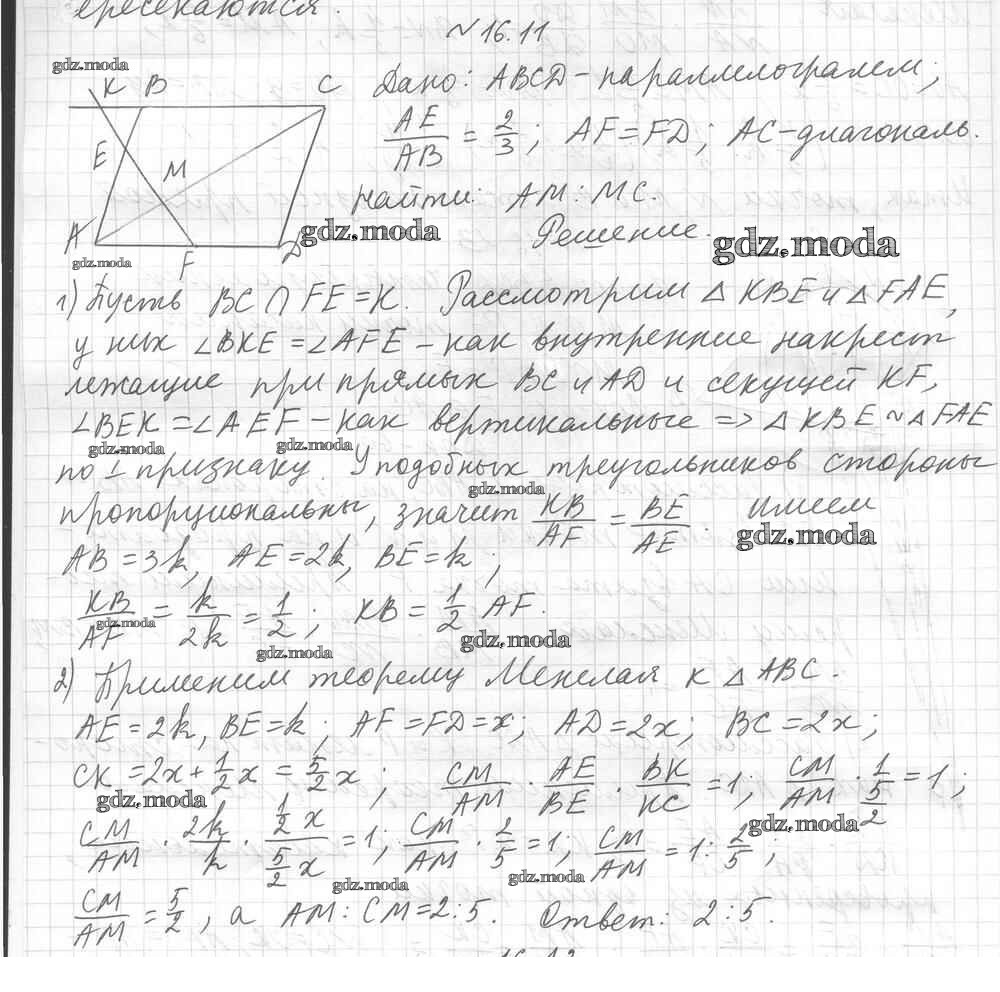 ересекаются.
№ 16.11
gdz.moda
K B C
E
M
A F D
Дано: ABCD - параллелограмм;
AE/AB = 2/3; AF = FD; AC - диагональ.
Найти: AM : MC.
gdz.moda
Решение.
gdz.moda
gdz.moda
1) Пусть BC ∩ FE = K. Рассмотрим △ KBE и △ FAE,
у них ∠BKE = ∠AFE - как внутренние накрест
лежащие при прямых BC и AD и секущей KF,
∠BEK = ∠AEF - как вертикальные => △ KBE ~ △ FAE
gdz.moda gdz.moda
по 1 признаку. У подобных треугольников стороны
gdz.moda
пропорциональны, значит KB/AF = BE/AE. имеем
gdz.moda
AB = 3k, AE = 2k, BE = k;
KB/AF = k/2k = 1/2; KB = 1/2 AF.
gdz.moda gdz.moda gdz.moda
2) Применим теорему Менелая к △ ABC.
AE = 2k, BE = k; AF = FD = x; AD = 2x; BC = 2x;
CK = 2x + 1/2 x = 5/2 x; CM/AM · AE/BE · BK/KC = 1; CM/AM · 1/(5/2) = 1;
gdz.moda gdz.moda
CM/AM · 2k/k · (1/2 x)/(5/2 x) = 1; CM/AM · 2/5 = 1; CM/AM = 1 : 2/5;
gdz.moda gdz.moda
CM/AM = 5/2, а AM : CM = 2 : 5. Ответ: 2 : 5.